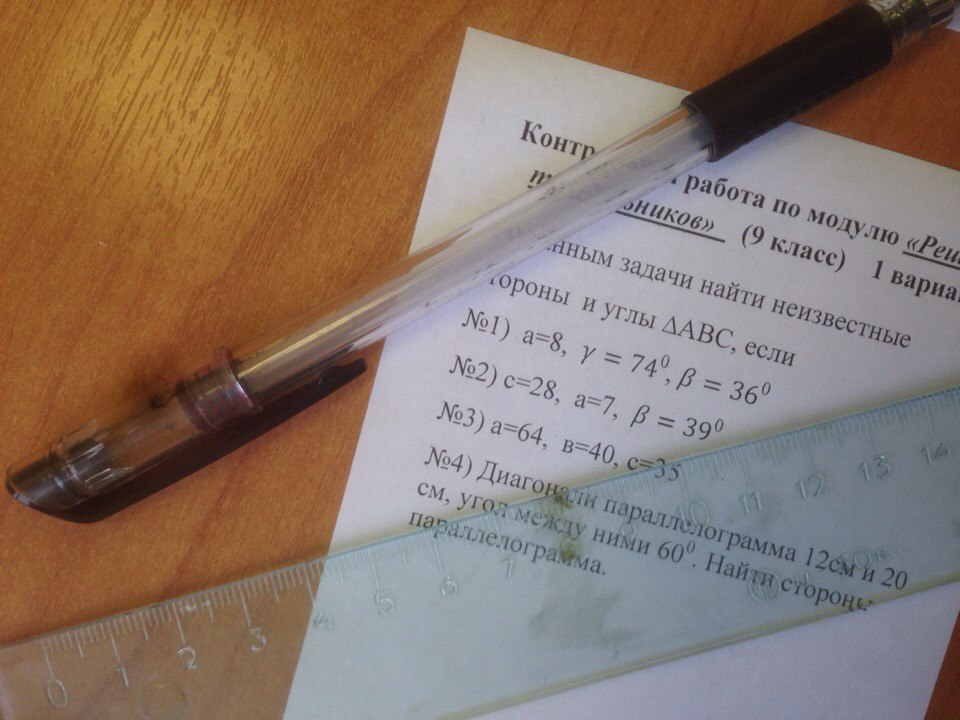 работа по модулю
(9 класс) 1
задачи найти неизвестные
и углы ΔАВС, если
№1) а=8, γ = 74⁰, β = 36⁰
№2) с=28, а=7, β = 39⁰
№3) а=64, в=40, с=35
№4) Диагонали параллелограмма 12см и 20
см, угол между ними 60⁰. Найти стороны
параллелограмма.
0 1 2 3 4 5 6 7 8 9 10 11 12 13 14